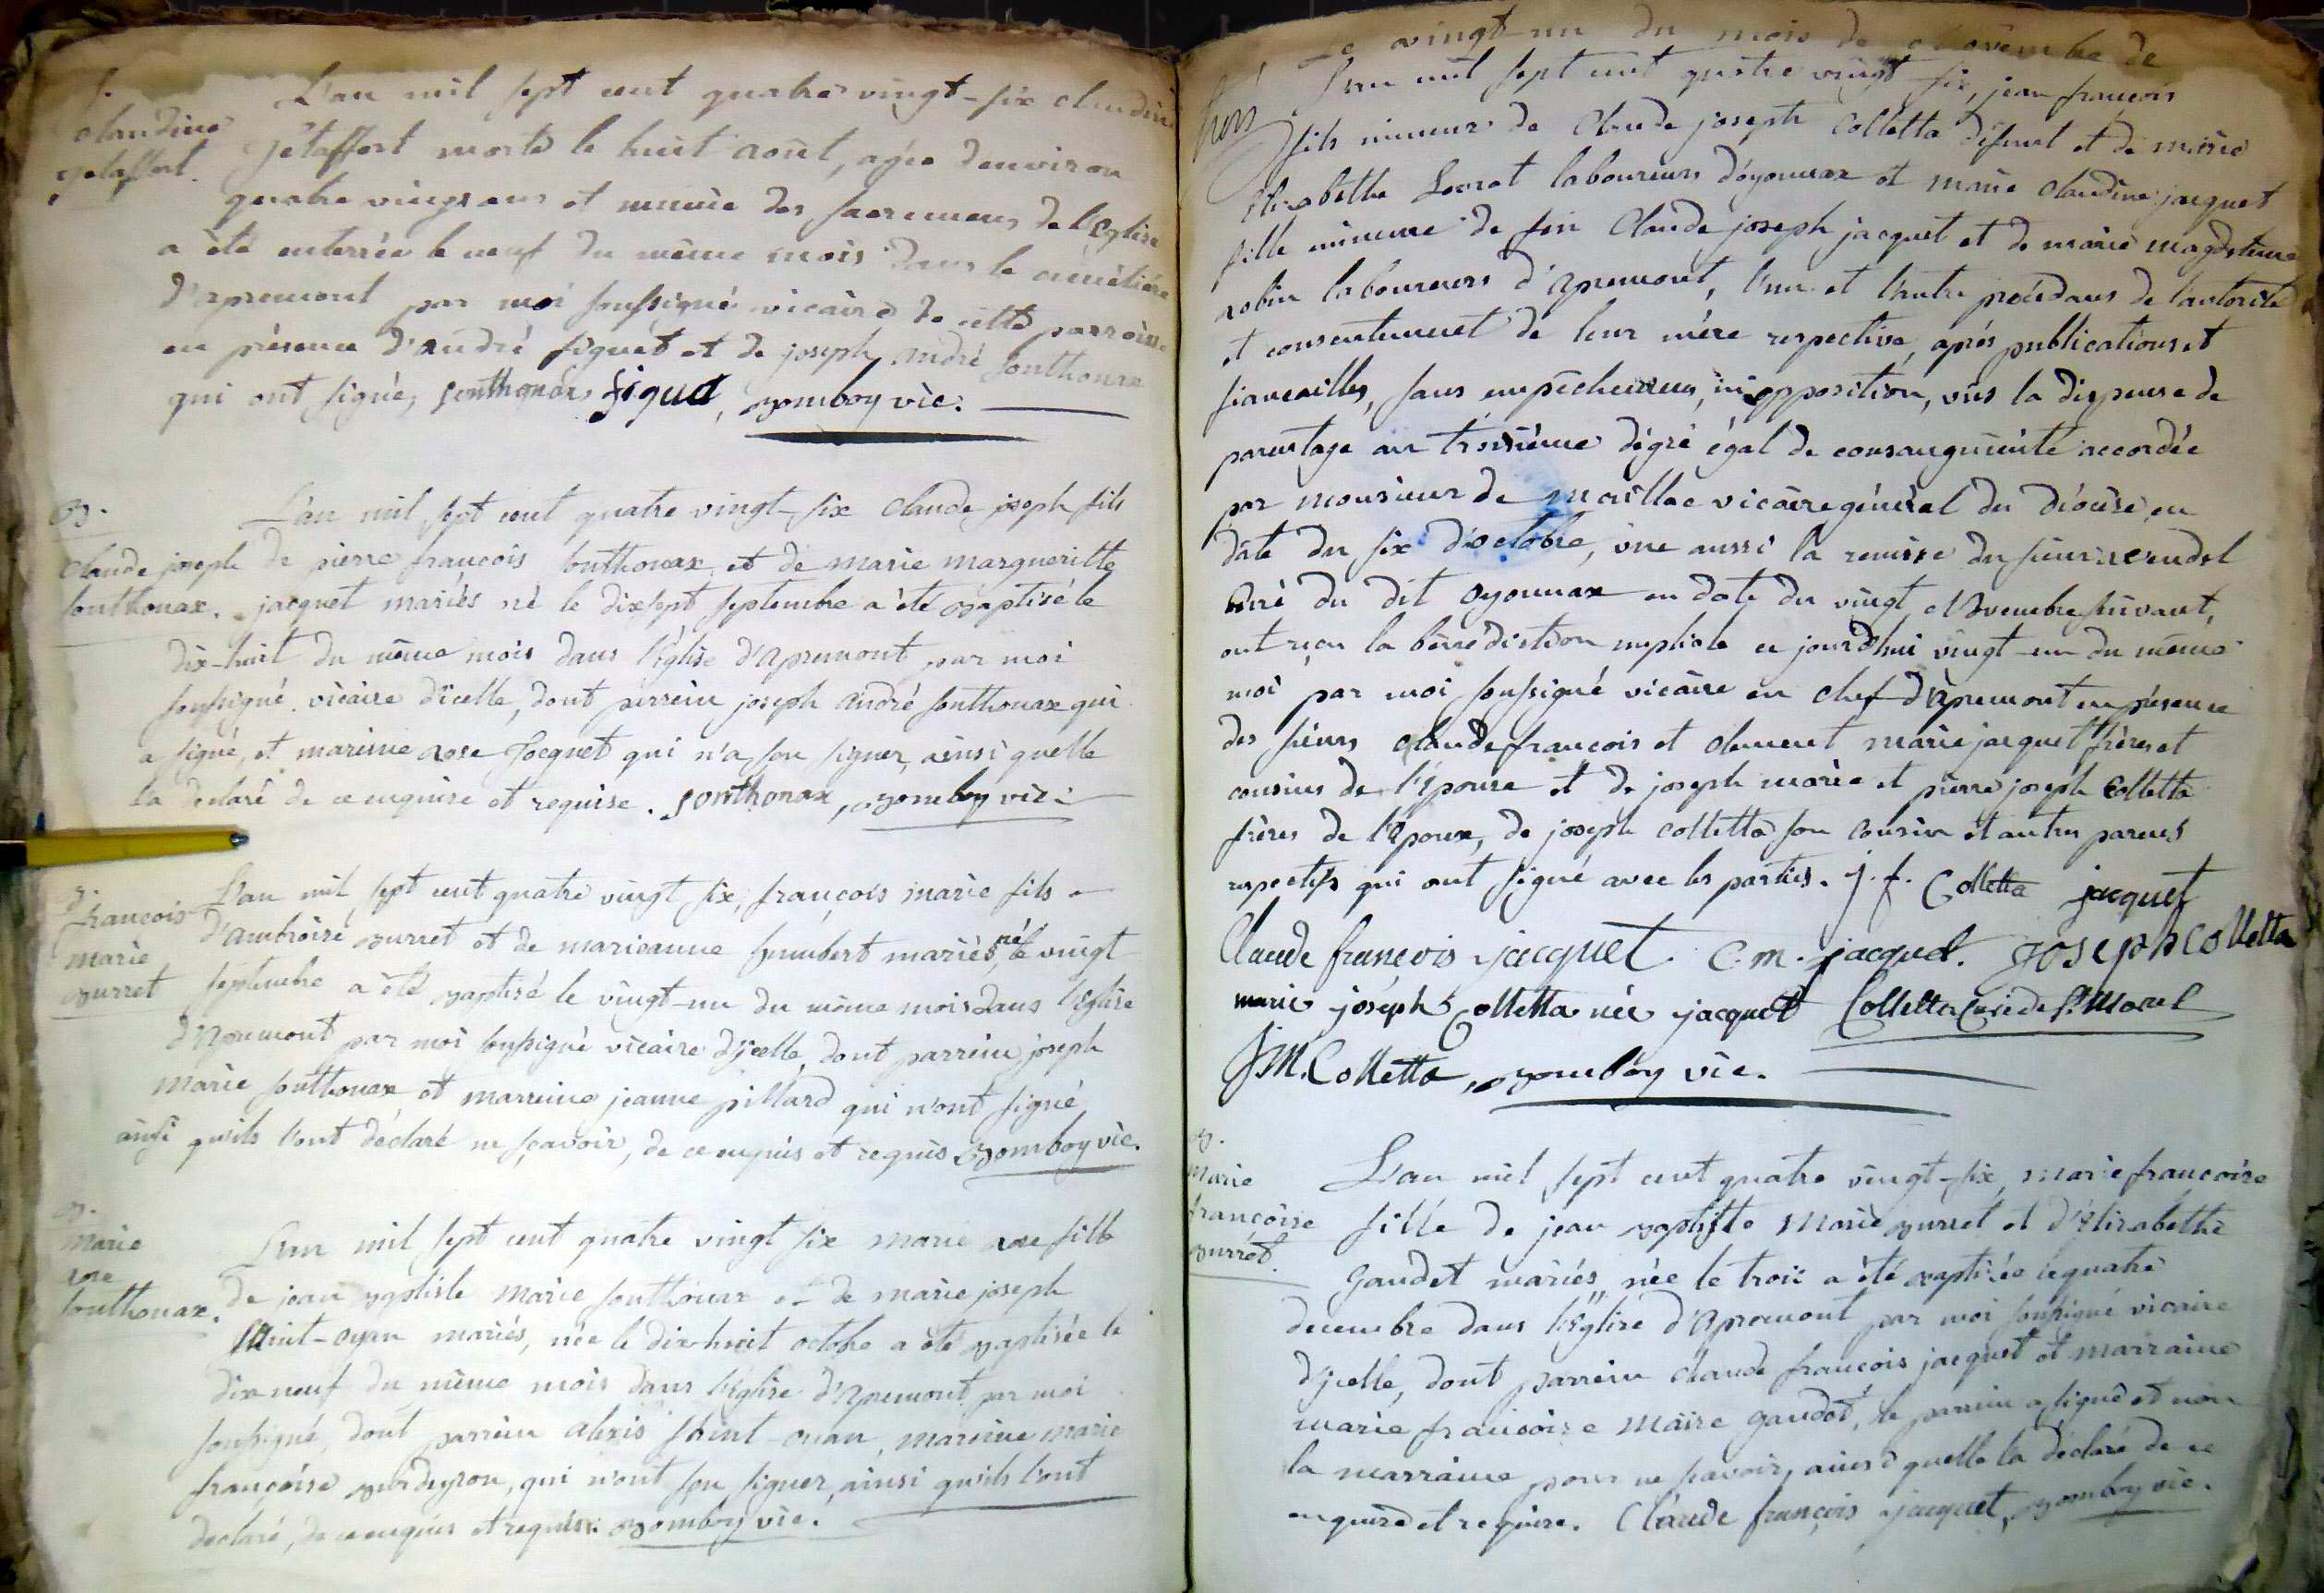 S.
Claudine
Jetaffort.
L'an mil sept cent quatre vingt-six Claudine
Jetaffort morte le huit août, agée d'environ
quatre vingts ans et munie des sacremens de l'Eglise
a été enterrée le neuf du même mois dans le cimetière
d'apremont par moi soussigné vicaire de cette parroisse
en présence d'andré figuet et de joseph andré sonthonax
qui ont signé, sonthonax figuet, bomboy vic.
B.
Claude joseph
sonthonax.
L'an mil sept cent quatre vingt-six Claude joseph fils
de pierre francois sonthonax et de marie margueritte
jacquet mariés né le dix sept septembre a été baptisé le
dix-huit du même mois dans l'Église d'apremont par moi
soussigné vicaire d'icelle, dont parrein joseph andré sonthonax qui
a signé, et mareine rose Jacquet qui n'a sçu signer, ainsi quelle
la declaré de ce enquise et requise. sonthonax, bomboy vic.
B.
francois
marie
burret
L'an mil sept cent quatre vingt six, françois marie fils
d'ambroise burret et de marieanne humbert mariés, né le vingt
septembre a été baptisé le vingt-un du même mois dans l'Eglise
d'apremont par moi soussigné vicaire d'jcelle, dont parrein joseph
marie sonthonax et marreine jeanne pillard qui n'ont signé
ainsi qu'ils l'ont déclaré ne sçavoir, de ce enquis et requis bomboy vic.
B.
marie
rose
sonthonax.
L'an mil sept cent quatre vingt six marie rose fille
de jean baptiste marie sonthonax et de marie joseph
Saint-oyan mariés, née le dix-huit octobre a été baptisée le
dix neuf du même mois dans l'Eglise d'apremont par moi
soussigné, dont parrein alexis Saint-oyan, mareine marie
françoise burdeyron, qui n'ont sçu signer, ainsi qu'ils l'ont
declaré, de ce enquis et requis. bomboy vic.
Le vingt-un du mois de Novembre de
l'an mil sept cent quatre vingt six, jean françois
fils mineur de Claude joseph Colletta défunt et de marie
Elisabethe laboureurs d'oyonnax et marie Claudine jacquet
fille mineure de feu Claude joseph jacquet et de marie magdeleine
robin laboureurs d'apremont, l'un et l'autre procédans de l'autorité
et consentement de leur mère respective, après publications et
fiancailles, sans empêchemens, ni opposition, vûs la dispense de
parentage au troisième dégré égal de consanguinité accordée
par monsieur de maillac vicaire général du diocèse en
date du six d'octobre, vue aussi la remise du sieur
curé du dit oyonnax en date du vingt Novembre suivant,
ont reçu la bénédiction nuptiale ce jourd'hui vingt-un du même
moi par moi soussigné vicaire en chef d'apremont en présence
des sieurs Claude francois et clement marie jacquet frère et
cousins de l'Épouse et de joseph marie et pierre joseph Colletta
frères de l'Epoux, de joseph colletta son cousin et autres parens
respectifs qui ont signé avec les parties. j. f. Colletta jacquet
Claude françois jacquet. C. m. jacquet. Joseph Colletta
marie joseph Colletta née jacquet Colletta Curé de
J M. Colletta, bomboy vic.
B.
marie
francoise
burret.
L'an mil sept cent quatre vingt-six, marie francoise
fille de jean baptiste marie burret et d'Elisabethe
gaudet mariés, née le trois a été baptisée le quatre
decembre dans l'Eglise d'apremont par moi soussigné vicaire
d'jcelle, dont parrein claude francois jacquet et marraine
marie francoise maire gaudet, le parrein a signé et non
la marraine pour ne savoir, ainsi quelle la déclaré de ce
enquise et requise. Claude françois jacquet, bomboy vic.